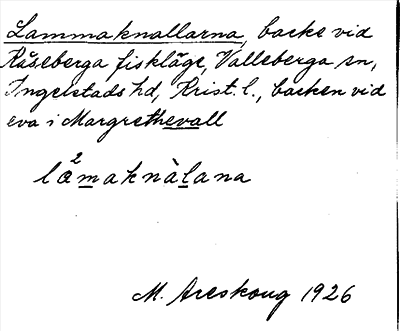 Lammaknallarna, backe vid
Kåseberga fiskläge, Valleberga sn,
Ingelstads hd, Krist. l., backen vid
eva i Margrethevall
læ²maknàlana
M. Areskoug 1926